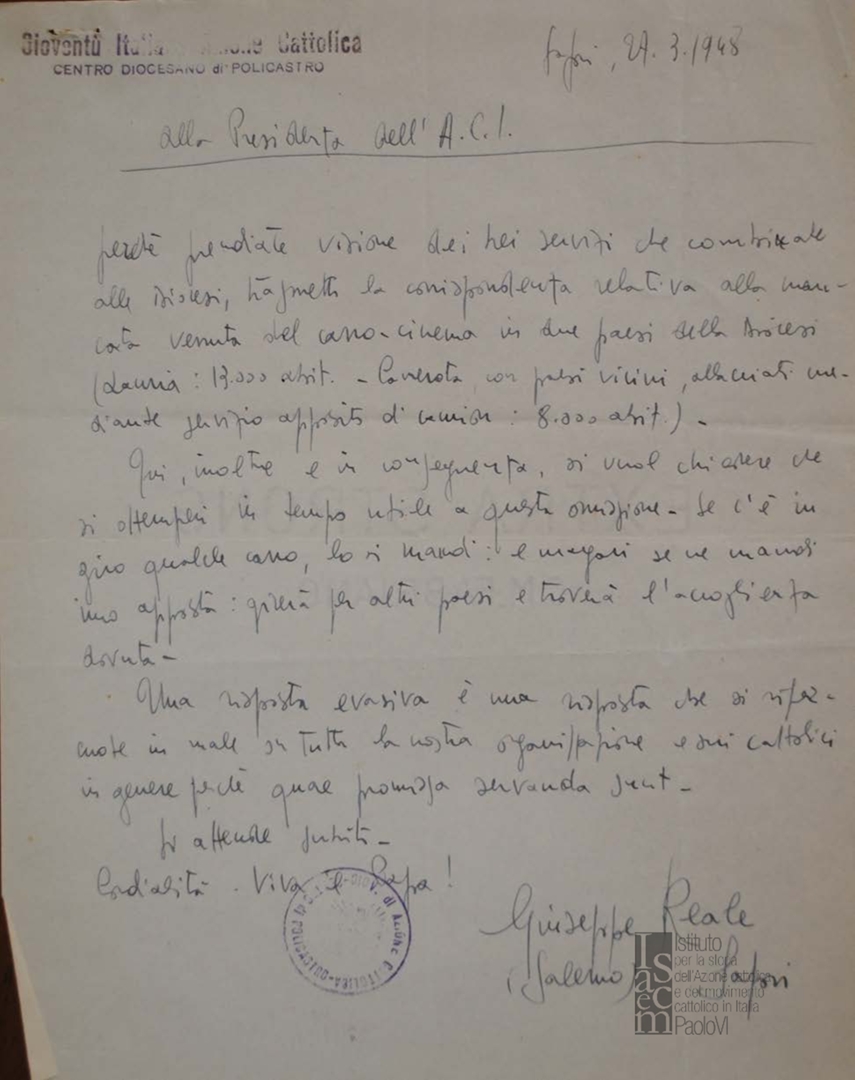 Gioventù Italiana Azione Cattolica
CENTRO DIOCESANO di POLICASTRO
Sapri, 27.3.1948
Alla Presidenza dell'A.C.I.
perchè prendiate visione dei bei servizi che combinate
alle Diocesi, trasmetto la corrispondenza relativa alla man-
cata venuta del carro-cinema in due paesi della Diocesi
(Lauria: 13.000 abit. - Camerota, con paesi vicini, allacciati me-
diante servizio apposito di camion: 8.000 abit.) -
Qui, inoltre e in conseguenza, si vuol chiedere che
si ottemperi in tempo utile a questa omissione - Se c'è in
giro qualche carro, lo si mandi: e magari se ne mandi
uno apposta: girerà per altri paesi e troverà l'accoglienza
dovuta -
Una risposta evasiva è una risposta che si riper-
cuote in male su tutta la nostra organizzazione e sui cattolici
in genere perchè quae promissa servanda sunt -
Si attende subito -
Cordialità. Viva il Papa!
Giuseppe Reale
(Salerno) Sapri
Isacem
Istituto
per la storia
dell'Azione cattolica
e del movimento
cattolico in Italia
PaoloVI